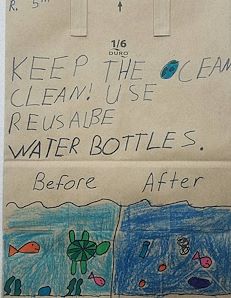 R. 5th
1/6
DURO
KEEP THE OCEAN
CLEAN! USE
REUSALBE
WATER BOTTLES.
Before After